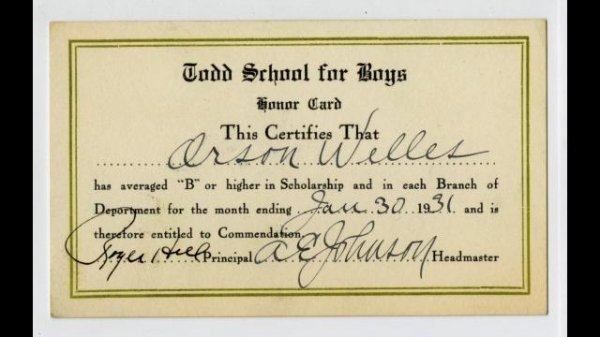 Todd School for Boys
Honor Card
This Certifies That
Orson Welles
has averaged "B" or higher in Scholarship and in each Branch of
Deportment for the month ending Jan 30 1931 and is
therefore entitled to Commendation.
Roger Hill Principal A E Johnson Headmaster